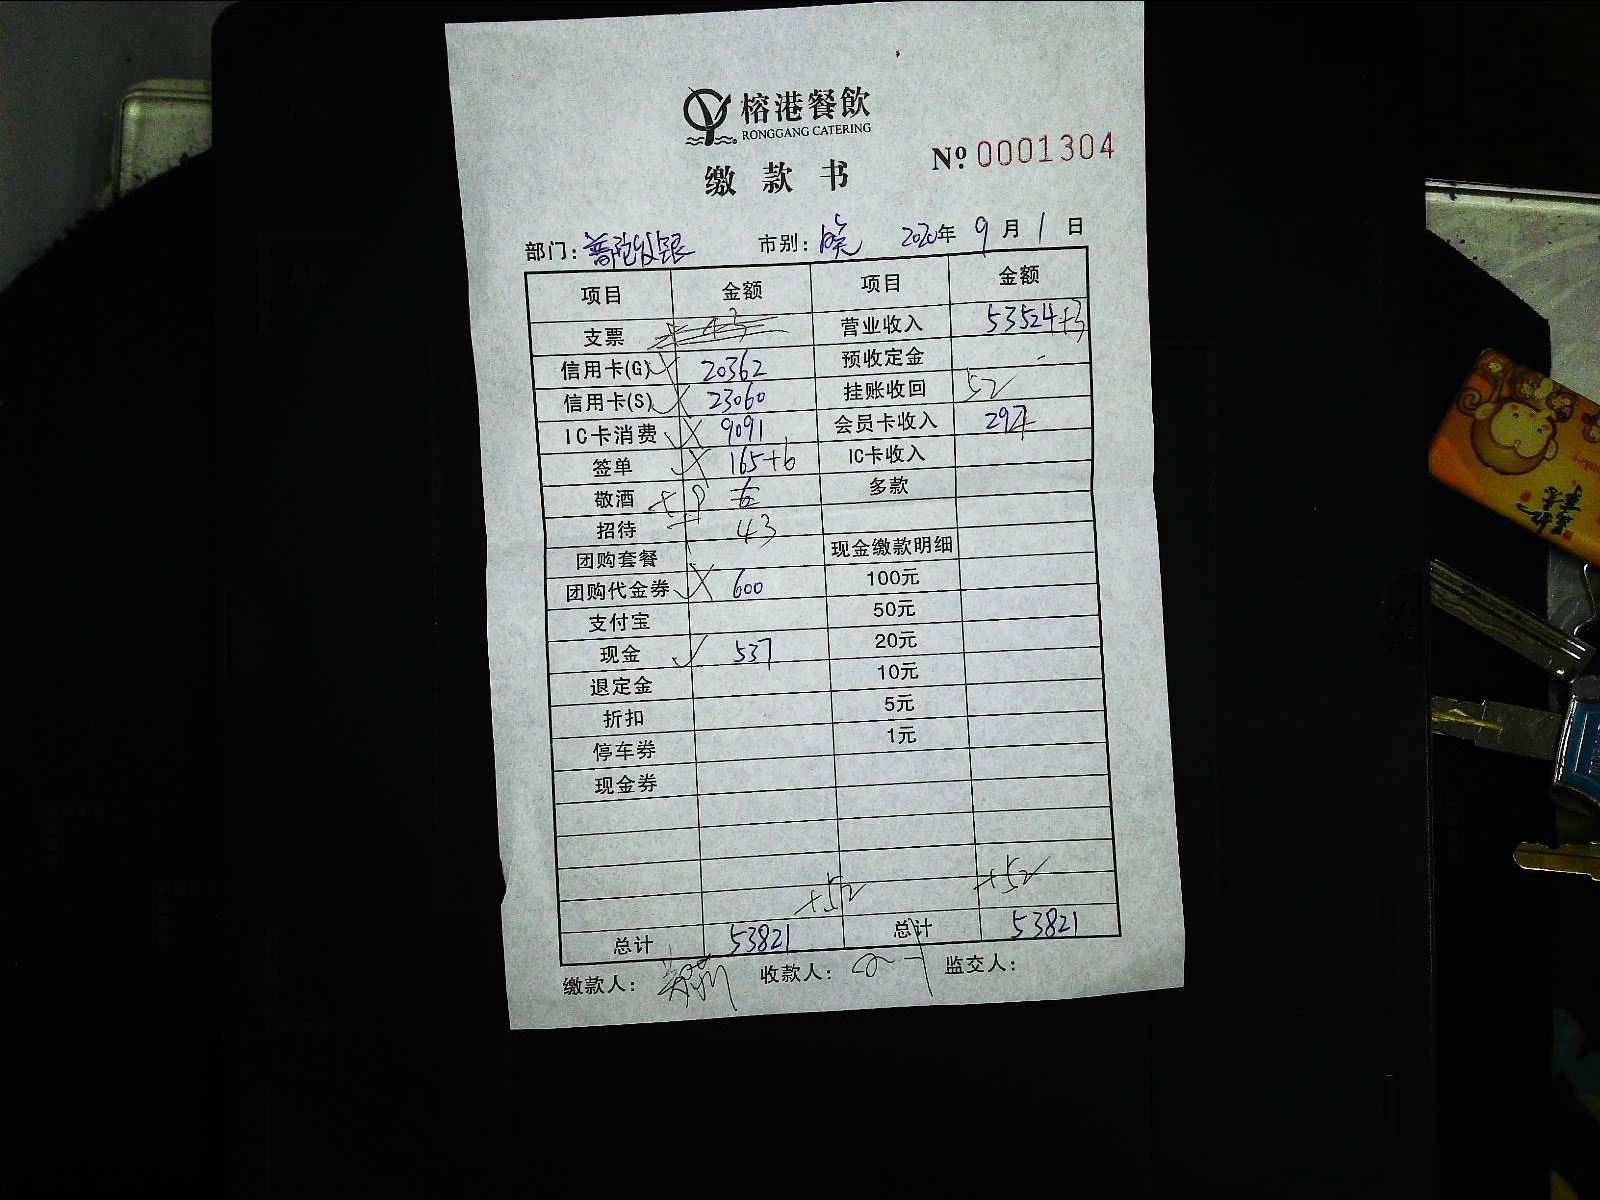 榕港餐飲
RONGGANG CATERING
缴款书
№ 0001304
部门：普陀收银 市别：晚 2020年 9月 1日
项目 金额 项目 金额
支票 营业收入 53524+3
信用卡(G) 20362 预收定金 -
信用卡(S) 23060 挂账收回 52
IC卡消费 9091 会员卡收入 297
签单 165+6 IC卡收入
敬酒 6 多款
招待 43
团购套餐 现金缴款明细
团购代金券 600 100元
支付宝 50元
现金 537 20元
退定金 10元
折扣 5元
停车券 1元
现金券
+52 +52
总计 53821 总计 53821
缴款人： 收款人： 监交人：